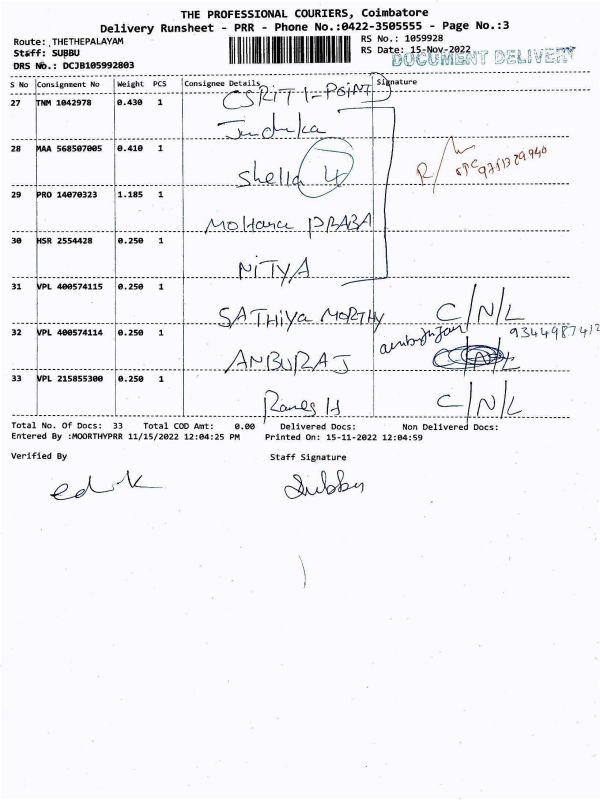 THE PROFESSIONAL COURIERS, Coimbatore
Delivery Runsheet - PRR - Phone No.:0422-3505555 - Page No.:3
Route: THETHEPALAYAM RS No.: 1059928
Staff: SUBBU RS Date: 15-Nov-2022
DOCUMENT DELIVERY
DRS No.: DCJB105992803
S No Consignment No Weight PCS Consignee Details Signature
27 TNM 1042978 0.430 1 CSRITI-POINT
28 MAA 568507005 0.410 1 Shella 4
29 PRO 14070323 1.185 1 PRABA
30 HSR 2554428 0.250 1 NITYA
31 VPL 400574115 0.250 1 SATHIYA MORTHY C/N/L
32 VPL 400574114 0.250 1 ANBURAJ
33 VPL 215855300 0.250 1 C/N/L
Total No. Of Docs: 33 Total COD Amt: 0.00 Delivered Docs: Non Delivered Docs:
Entered By :MOORTHYPRR 11/15/2022 12:04:25 PM Printed On: 15-11-2022 12:04:59
Verified By Staff Signature
Subbu